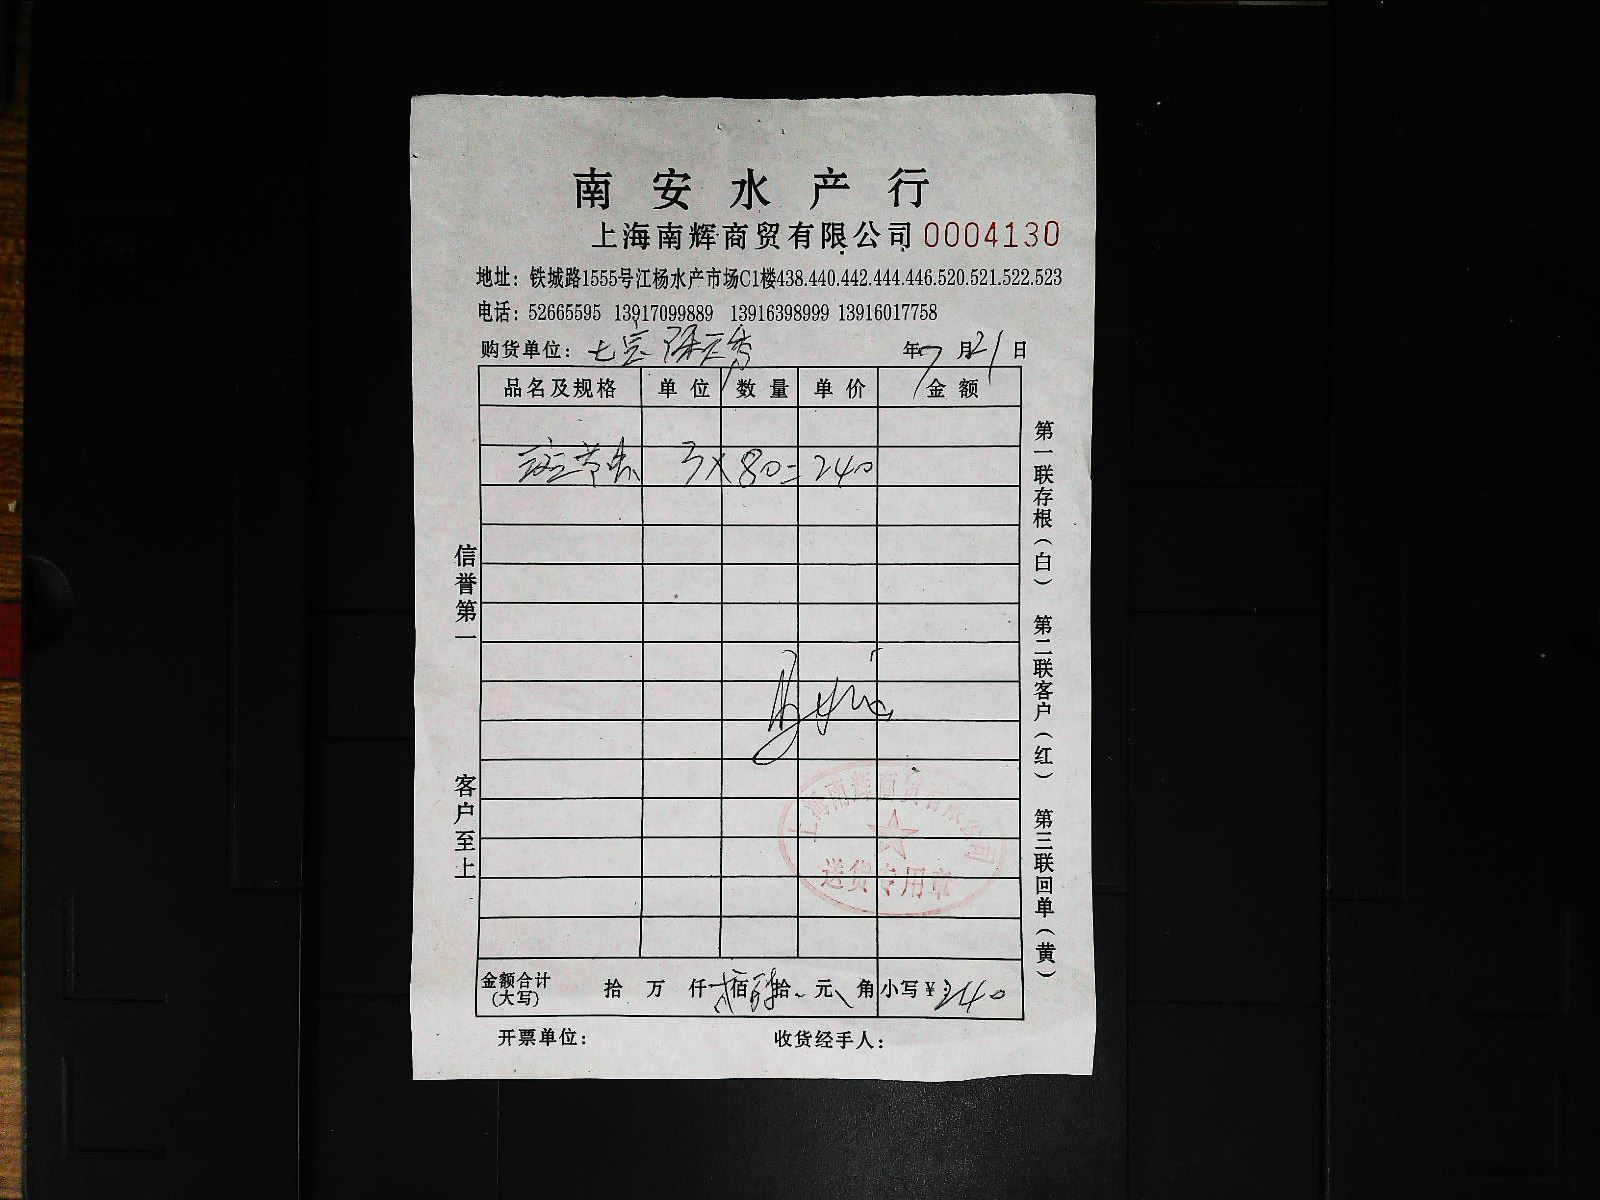 南安水产行
上海南辉商贸有限公司 0004130
地址：铁城路1555号江杨水产市场C1楼438.440.442.444.446.520.521.522.523
电话：52665595 13917099889 13916398999 13916017758
购货单位：七宝
年7月21日
品名及规格 单位 数量 单价 金额
斑节虾 3×80=240
信誉第一
客户至上
第一联存根（白） 第二联客户（红） 第三联回单（黄）
上海南辉商贸有限公司
送货专用章
金额合计（大写） 拾 万 仟 贰佰肆拾 元 角 小写￥：240
开票单位： 收货经手人：